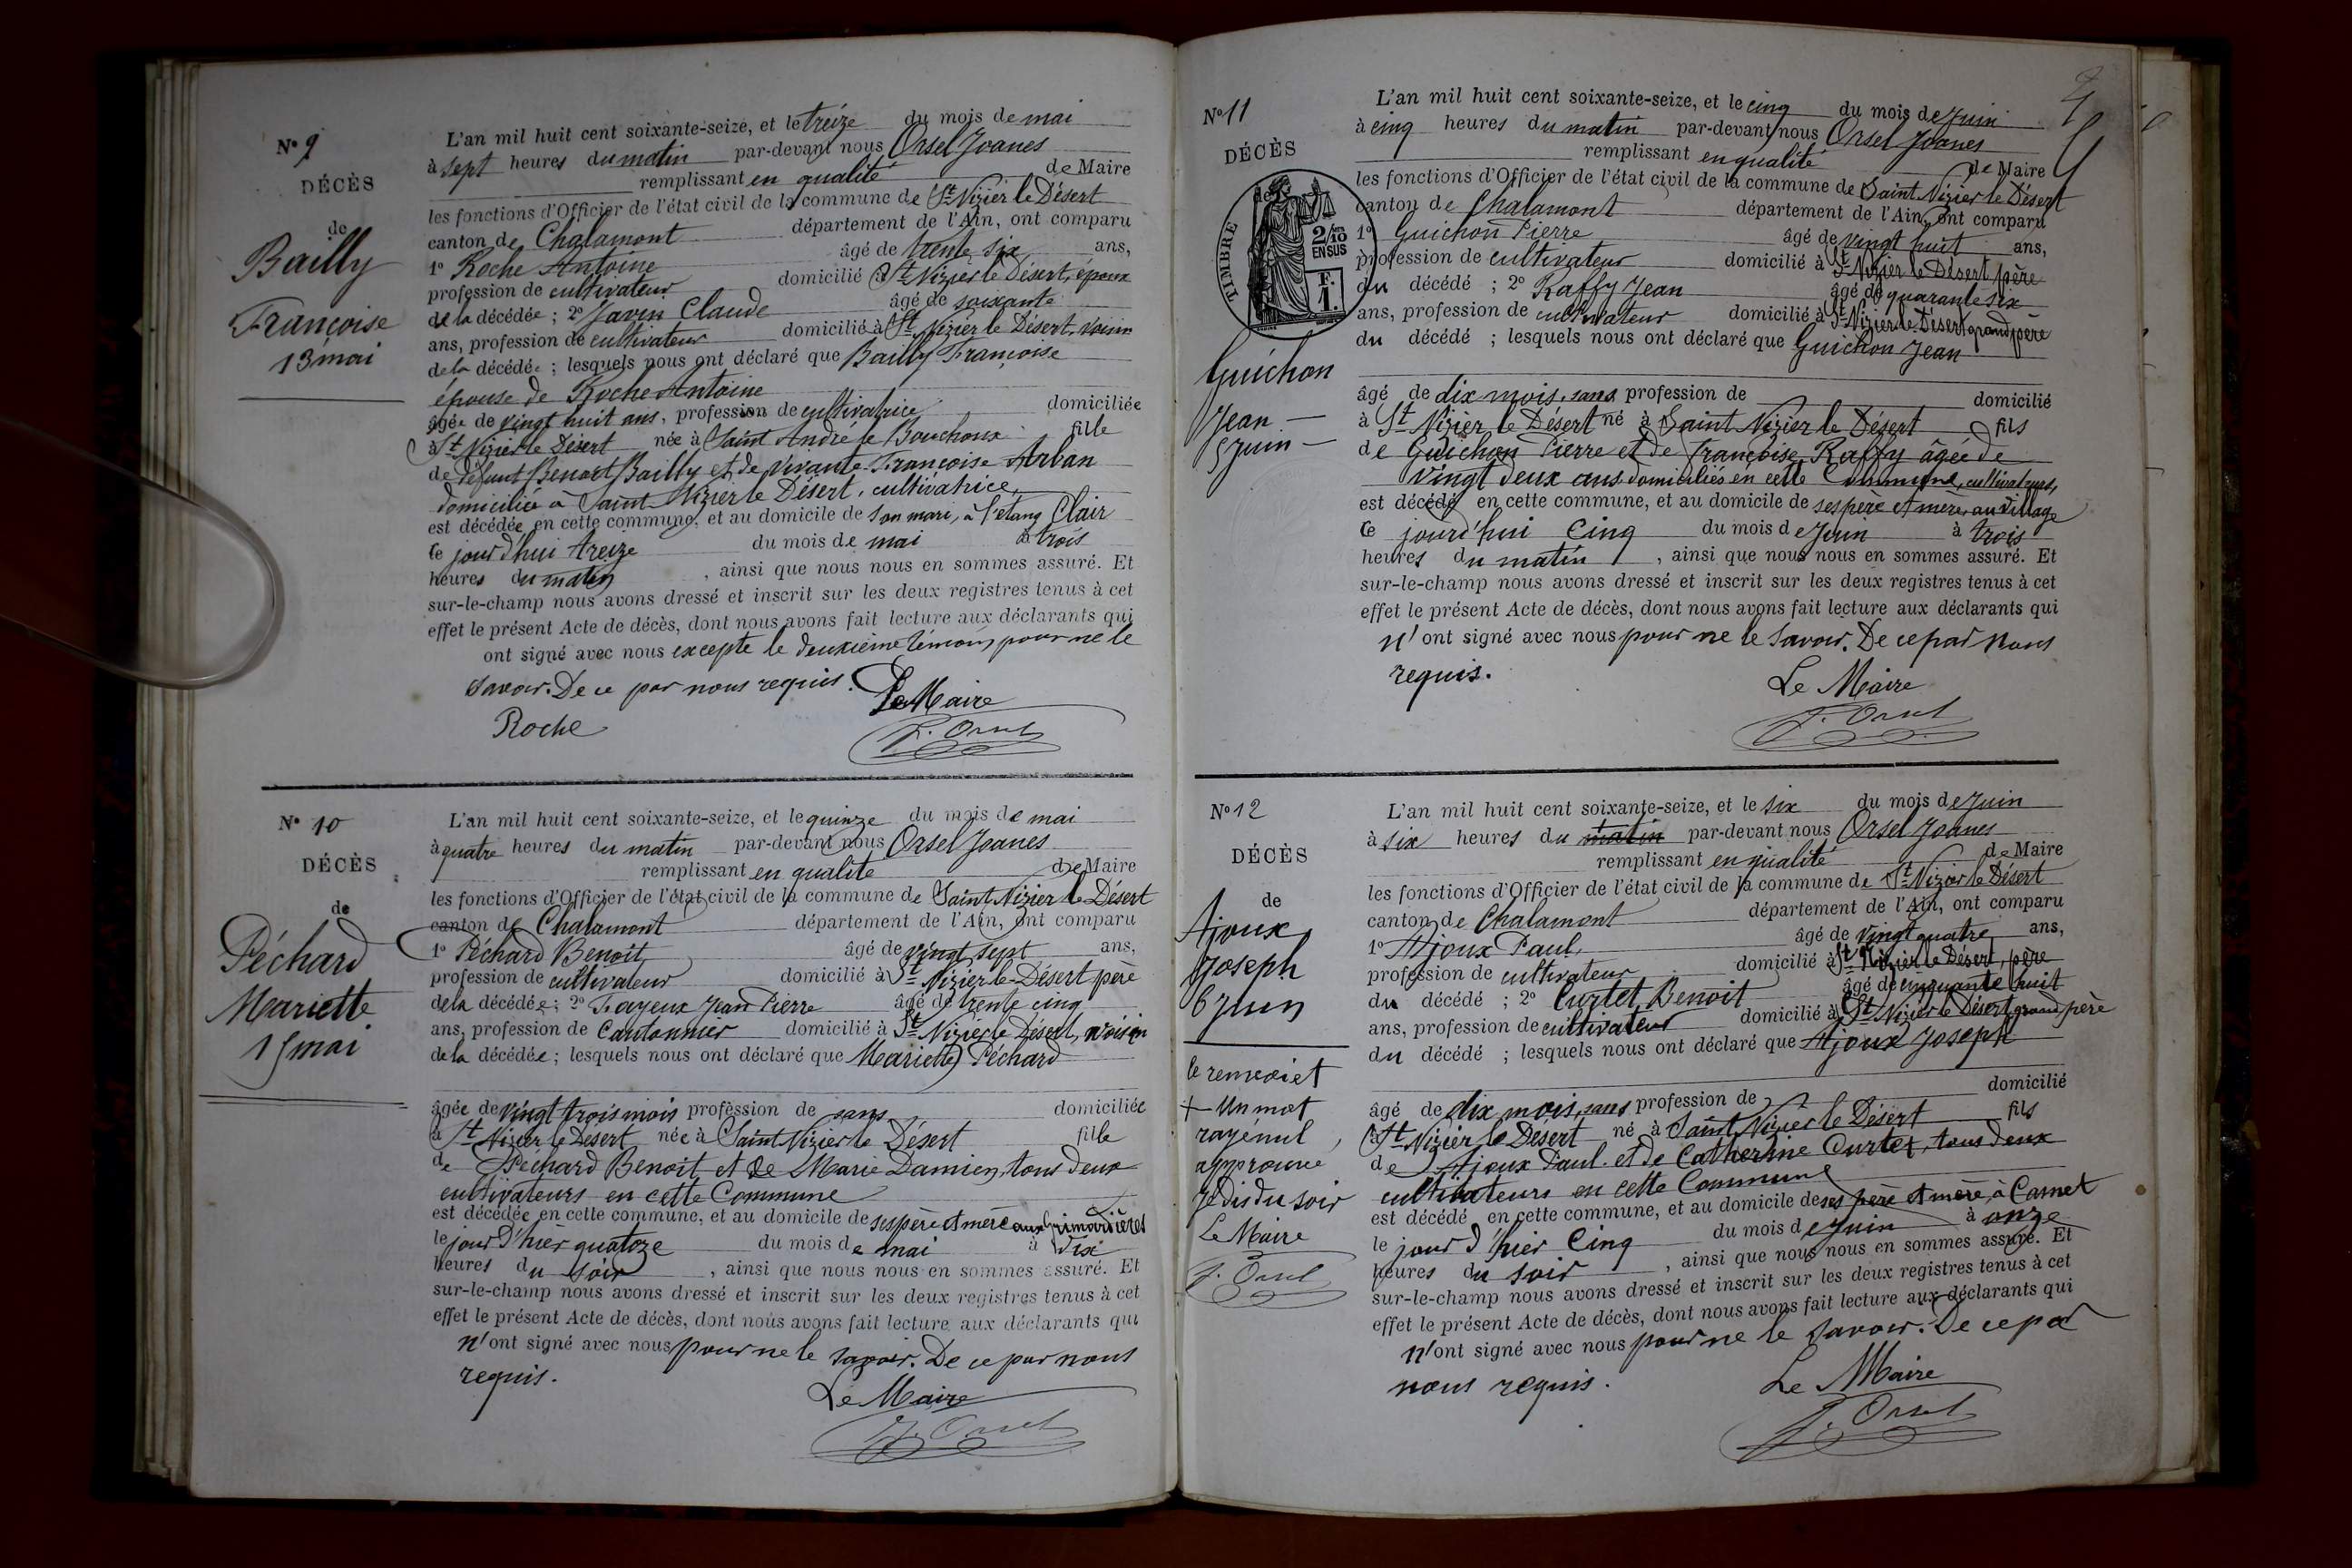 N° 9
DÉCÈS
de
Bailly
Françoise
13 mai
L'an mil huit cent soixante-seize, et le treize du mois de mai
à sept heures du matin par-devant nous Orsel Joanes
remplissant en qualité de Maire
les fonctions d'Officier de l'état civil de la commune de St Nizier le Désert
canton de Chalamont département de l'Ain, ont comparu
1° Roche Antoine âgé de trente six ans,
profession de cultivateur domicilié à St Nizier le Désert, époux
de la décédée ; 2° Javen Claude âgé de soixante
ans, profession de cultivateur domicilié à St Nizier le Désert, voisin
de la décédée ; lesquels nous ont déclaré que Bailly Françoise
épouse de Roche Antoine
âgée de vingt huit ans, profession de cultivatrice domiciliée
à St Nizier le Désert née à Saint André le Bouchoux fille
de défunt Benoit Bailly et de vivante Françoise Arban
domiciliée à Saint Nizier le Désert, cultivatrice,
est décédée en cette commune, et au domicile de son mari, à l'étang Clair
ce jourd'hui treize du mois de mai à trois
heures du matin , ainsi que nous nous en sommes assuré. Et
sur-le-champ nous avons dressé et inscrit sur les deux registres tenus à cet
effet le présent Acte de décès, dont nous avons fait lecture aux déclarants qui
ont signé avec nous excepte le deuxième témoin, pour ne le
savoir. De ce par nous requis.
Le Maire
Roche
J. Orsel
N° 10
DÉCÈS
de
Péchard
Mariette
15 mai
L'an mil huit cent soixante-seize, et le quinze du mois de mai
à quatre heures du matin par-devant nous Orsel Joanes
remplissant en qualité de Maire
les fonctions d'Officier de l'état civil de la commune de Saint Nizier le Désert
canton de Chalamont département de l'Ain, ont comparu
1° Péchard Benoit âgé de vingt sept ans,
profession de cultivateur domicilié à St Nizier le Désert père
de la décédée ; 2° Fayeux Jean Pierre âgé de trente cinq
ans, profession de Cantonnier domicilié à St Nizier le Désert, voisin
de la décédée ; lesquels nous ont déclaré que Mariette Péchard
âgée de vingt trois mois profession de sans domiciliée
à St Nizier le Désert née à Saint Nizier le Désert fille
de Péchard Benoit et de Marie Damien, tous deux
cultivateurs en cette Commune
est décédée en cette commune, et au domicile de ses père et mère aux Grimardières
le jour d'hier quatoze du mois de mai à dix
heures du soir , ainsi que nous nous en sommes assuré. Et
sur-le-champ nous avons dressé et inscrit sur les deux registres tenus à cet
effet le présent Acte de décès, dont nous avons fait lecture aux déclarants qui
n'ont signé avec nous pour ne le savoir. De ce par nous
requis.
Le Maire
J. Orsel
N° 11
DÉCÈS
de
TIMBRE
2/10
EN SUS
F.
1.
Guichon
Jean
5 Juin
L'an mil huit cent soixante-seize, et le cinq du mois de Juin
à cinq heures du matin par-devant nous Orsel Joanes
remplissant en qualité de Maire
les fonctions d'Officier de l'état civil de la commune de Saint Nizier le Désert
canton de Chalamont département de l'Ain, ont comparu
1° Guichon Pierre âgé de vingt huit ans,
profession de cultivateur domicilié à St Nizier le Désert père
du décédé ; 2° Raffy Jean âgé de quarante six
ans, profession de cultivateur domicilié à St Nizier le Désert grand père
du décédé ; lesquels nous ont déclaré que Guichon Jean
âgé de dix mois, sans profession de domicilié
à St Nizier le Désert né à Saint Nizier le Désert fils
de Guichon Pierre et de Françoise Raffy âgée de
vingt deux ans domiciliés en cette Commune, cultivateurs,
est décédé en cette commune, et au domicile de ses père et mère, au village
ce jourd'hui cinq du mois de Juin à trois
heures du matin , ainsi que nous nous en sommes assuré. Et
sur-le-champ nous avons dressé et inscrit sur les deux registres tenus à cet
effet le présent Acte de décès, dont nous avons fait lecture aux déclarants qui
n'ont signé avec nous pour ne le savoir. De ce par nous
requis.
Le Maire
J. Orsel
N° 12
DÉCÈS
de
Ajoux
Joseph
6 Juin
le remexiet
+ Un mot
rayé nul
approuvé
Je dis du soir
Le Maire
J. Orsel
L'an mil huit cent soixante-seize, et le six du mois de Juin
à six heures du matin par-devant nous Orsel Joanes
remplissant en qualité de Maire
les fonctions d'Officier de l'état civil de la commune de St Nizier le Désert
canton de Chalamont département de l'Ain, ont comparu
1° Ajoux Paul âgé de vingt quatre ans,
profession de cultivateur domicilié à St Nizier le Désert, père
du décédé ; 2° Curtet Benoit âgé de cinquante huit
ans, profession de cultivateur domicilié à St Nizier le Désert grand père
du décédé ; lesquels nous ont déclaré que Ajoux Joseph
âgé de dix mois, sans profession de domicilié
à St Nizier le Désert né à Saint Nizier le Désert fils
de Ajoux Paul et de Catherine Curtet, tous deux
cultivateurs en cette Commune
est décédé en cette commune, et au domicile de ses père et mère, à Carnet
le jour d'hier Cinq du mois de Juin à onze
heures du soir , ainsi que nous nous en sommes assuré. Et
sur-le-champ nous avons dressé et inscrit sur les deux registres tenus à cet
effet le présent Acte de décès, dont nous avons fait lecture aux déclarants qui
n'ont signé avec nous pour ne le savoir. De ce par
nous requis.
Le Maire
J. Orsel